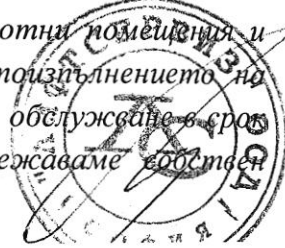 отни помещения и
тоизпълнението на
обслужване в срок
ежаваме собствен
ЕООД